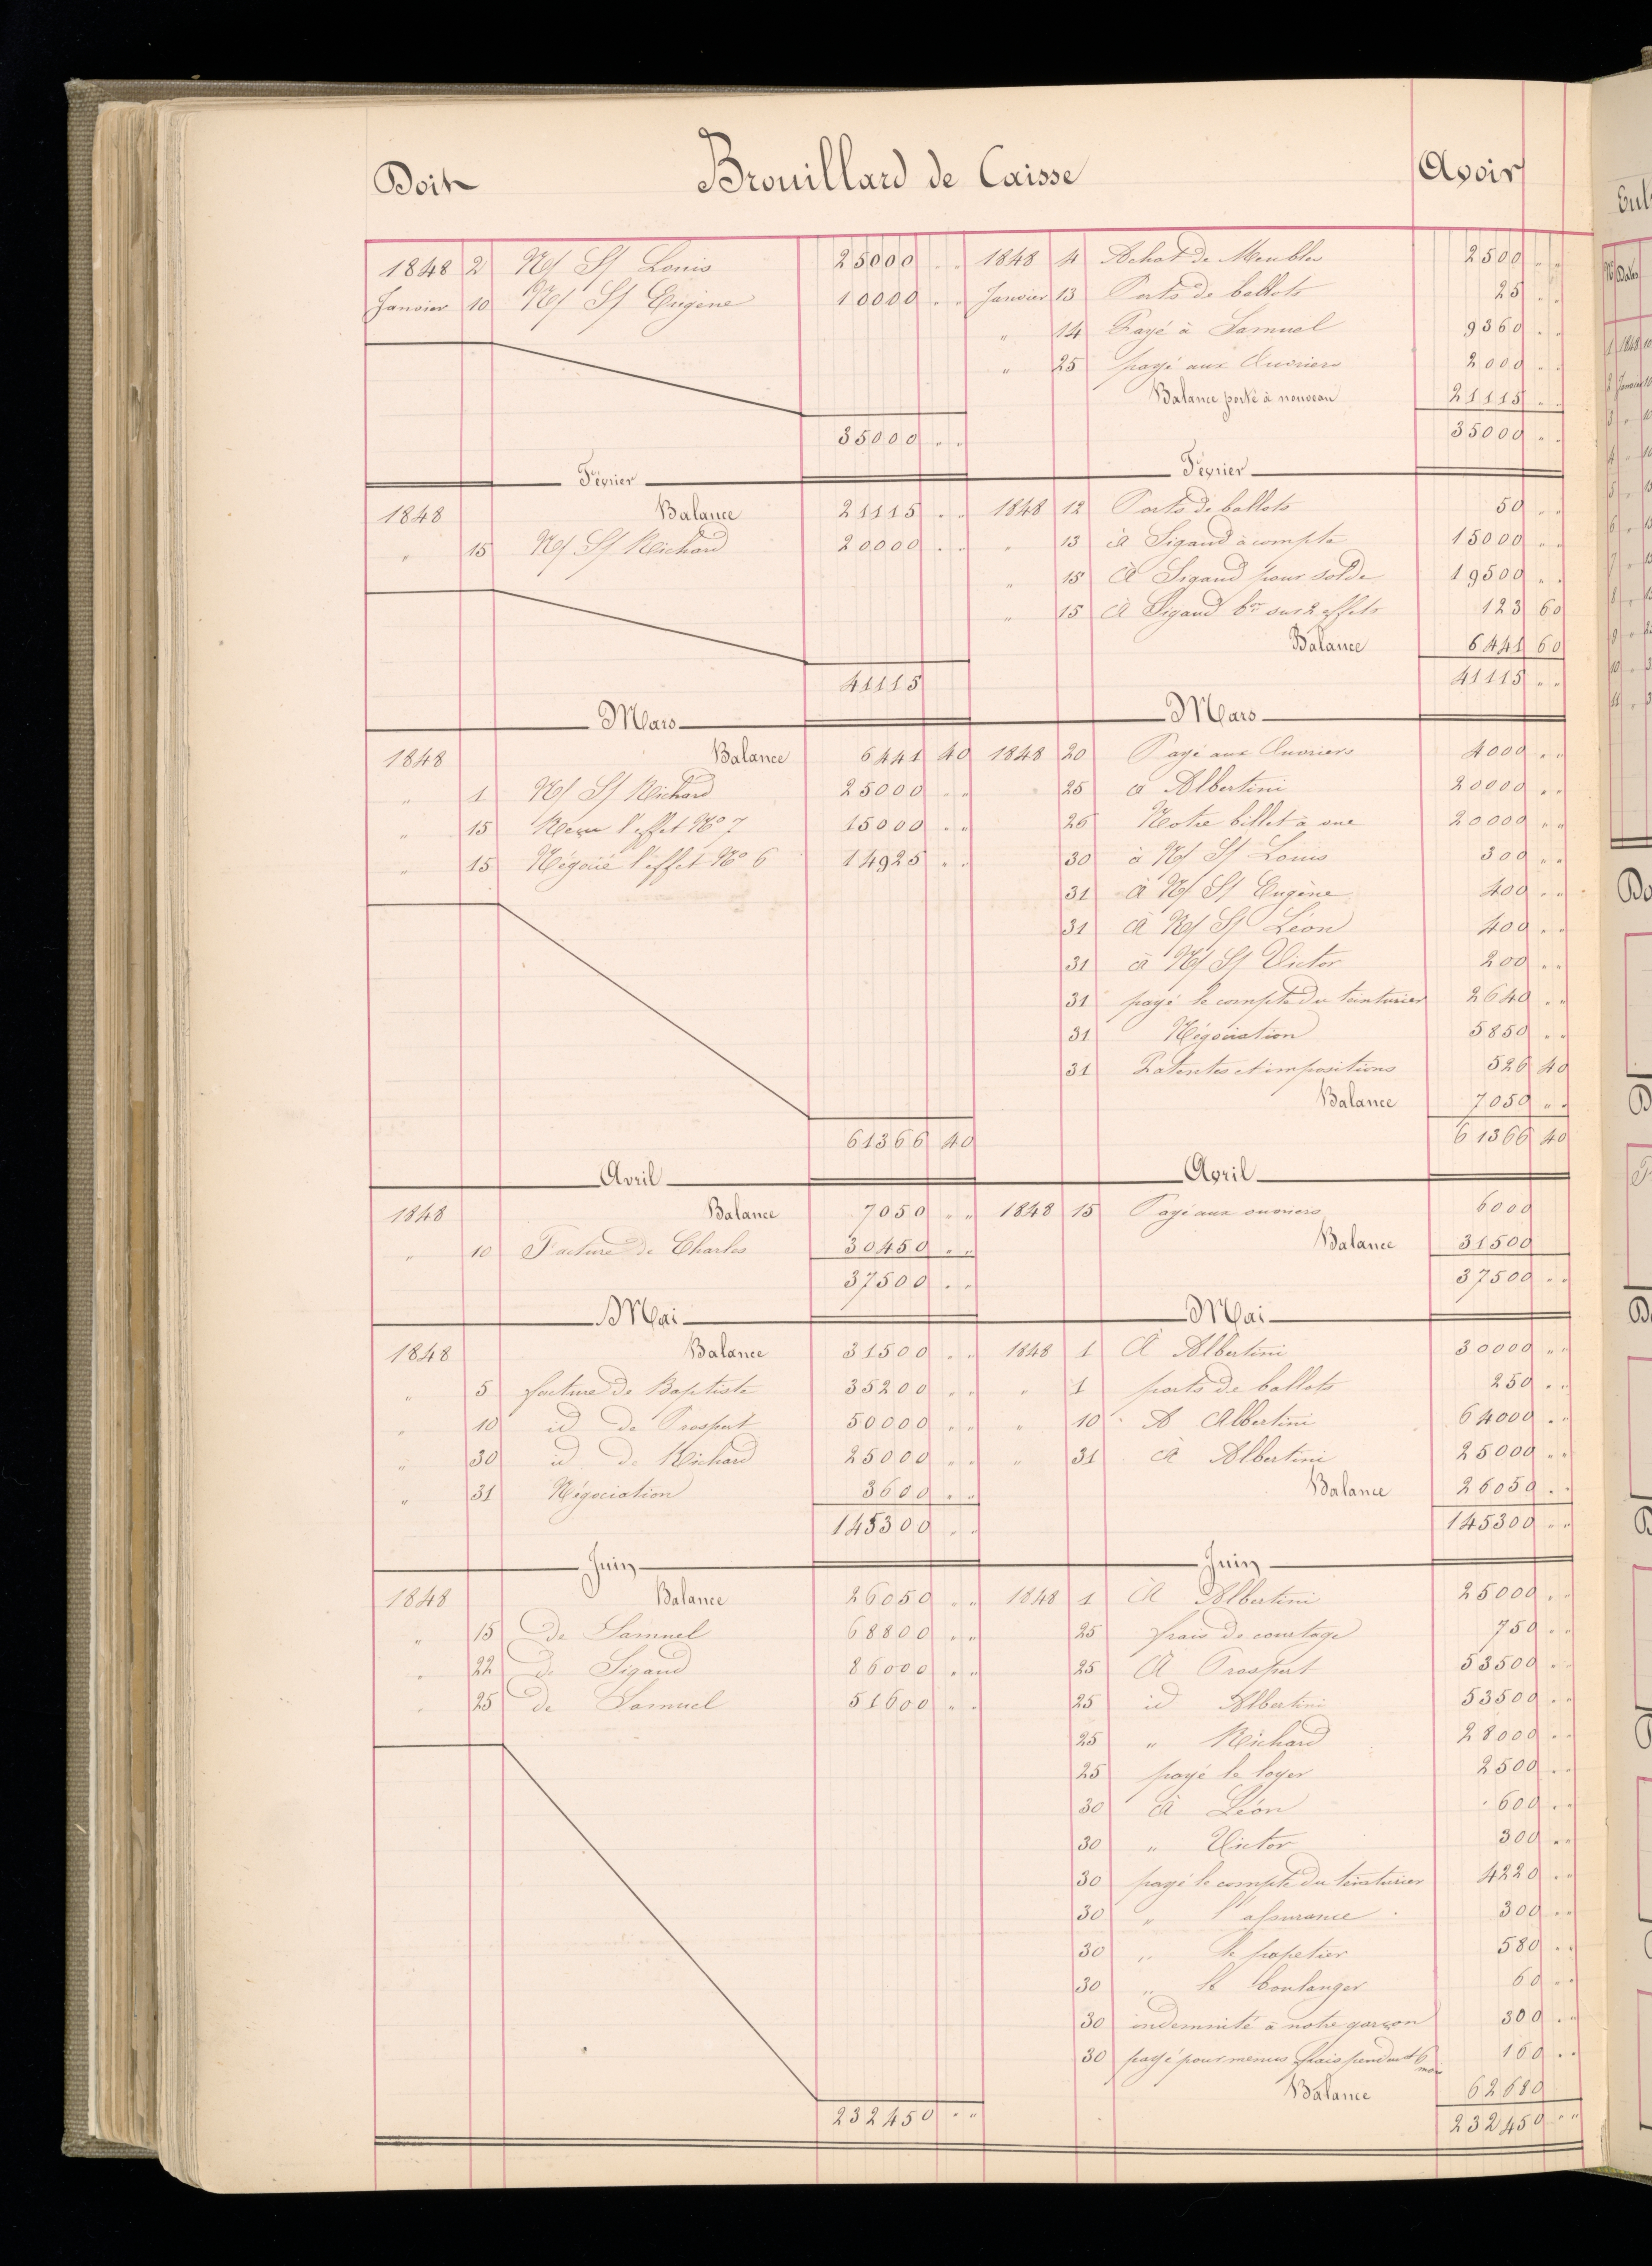 Doit Brouillard de Caisse Avoir
1848 2 N/ S/ Louis 25000 " " 1848 4 Achat de Meubles 2500 " "
Janvier 10 N/ S/ Eugène 10000 " " Janvier 13 Ports de ballots 25 " "
" 14 Payé à Samuel 9360 " "
" 25 payé aux Ouvriers 2000 " "
Balance porté à nouveau 21115 " "
35000 " " 35000 " "
Février Février
1848 Balance 21115 " " 1848 12 Ports de ballots 50 " "
" 15 N/ S/ Richard 20000 " " " 13 à Sigaud à compte 15000 " "
" 15 À Sigaud pour solde 19500 " "
" 15 À Sigaud sur 2 effets 123 60
Balance 6441 60
41115 41115 " "
Mars Mars
1848 Balance 6441 40 1848 20 Payé aux Ouvriers 4000 " "
" 1 N/ S/ Richard 25000 " " 25 à Albertini 20000 " "
" 15 Reçu l'effet No 7 15000 " " 26 Notre billet à vue 20000 " "
" 15 Négocié l'effet No 6 14925 " " 30 à N/ S/ Louis 300 " "
31 À N/ S/ Eugène 400 " "
31 À N/ S/ Léon 400 " "
31 à N/ S/ Victor 200 " "
31 payé le compte du teinturier 2640 " "
31 Négociation 5850 " "
31 Patentes et impositions 526 40
Balance 7050 " "
61366 40 61366 40
Avril Avril
1848 Balance 7050 " " 1848 15 Payé aux ouvriers 6000
" 10 Facture de Charles 30450 " " Balance 31500
37500 " " 37500 " "
Mai Mai
1848 Balance 31500 " " 1848 1 À Albertini 30000 " "
" 5 facture de Baptiste 35200 " " " 1 ports de ballots 250 " "
" 10 id de Prospert 50000 " " " 10 A Albertini 64000 " "
" 30 id de Richard 25000 " " " 31 À Albertini 25000 " "
" 31 Négociation 3600 " " Balance 26050 " "
145300 " " 145300 " "
Juin Juin
1848 Balance 26050 " " 1848 1 À Albertini 25000 " "
" 15 de Samuel 68800 " " 25 frais de courtage 750 " "
" 22 de Sigaud 86000 " " 25 À Prospert 53500 " "
" 25 de Samuel 51600 " " 25 id Albertini 53500 " "
25 " Richard 28000 " "
25 payé le loyer 2500 " "
30 À Léon 600 " "
30 " Victor 300 " "
30 payé le compte du teinturier 4220 " "
30 " l'assurance 300 " "
30 " le papetier 580 " "
30 " le boulanger 60 " "
30 indemnité à notre garçon 300 " "
30 payé pour menus frais pendant 6 mois 160 " "
Balance 62680
232450 " " 232450 " "